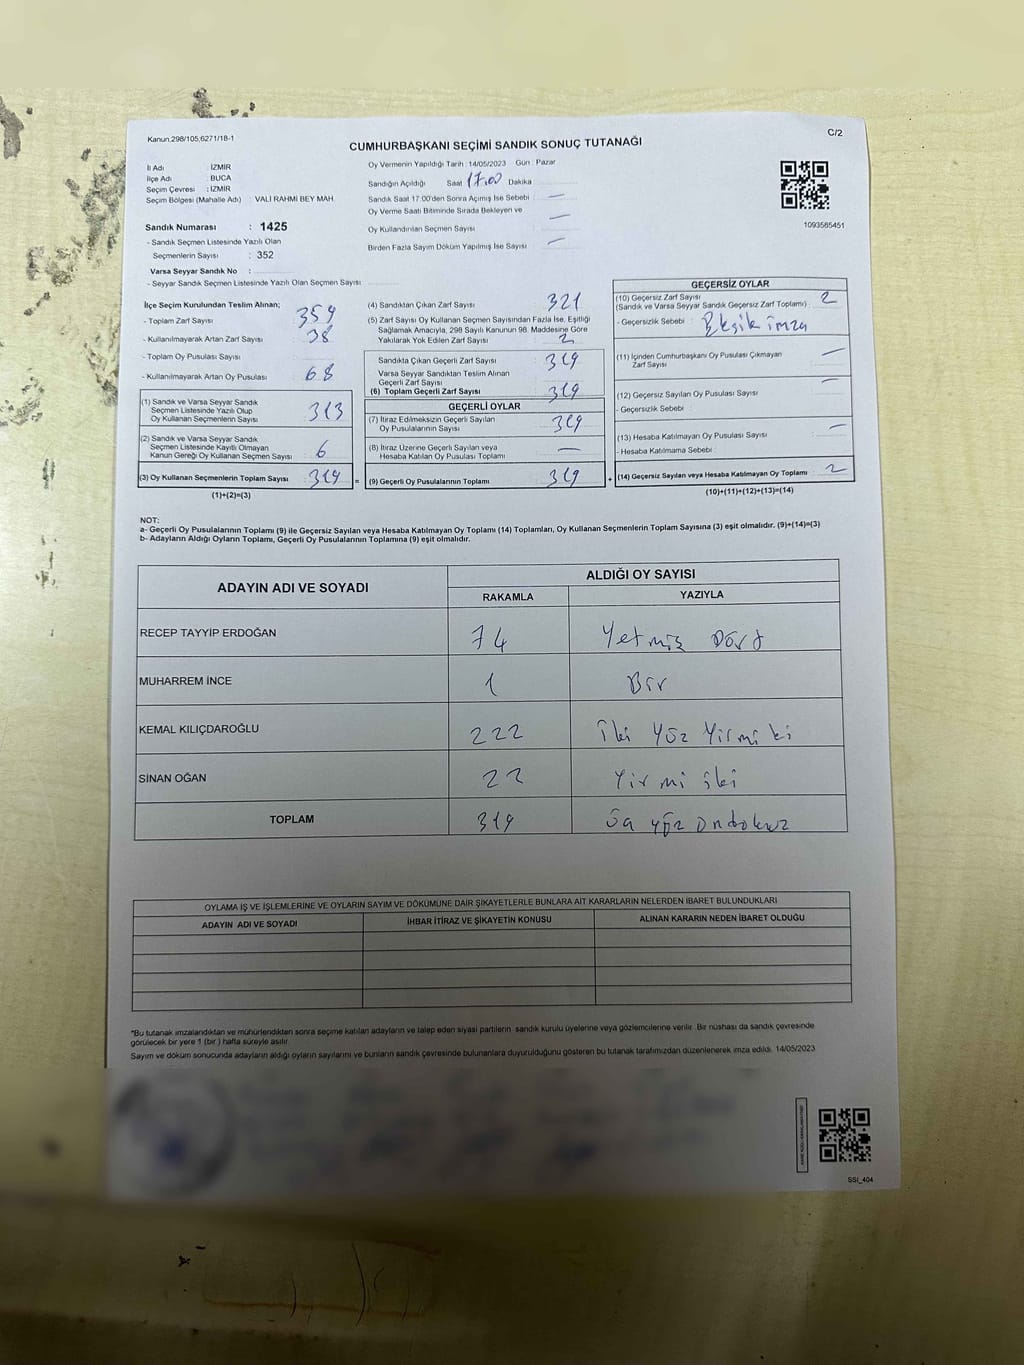 Kanun:298/105;6271/18-1
C/2
CUMHURBAŞKANI SEÇİMİ SANDIK SONUÇ TUTANAĞI
İl Adı İZMİR
İlçe Adı BUCA
Seçim Çevresi : İZMİR
Seçim Bölgesi (Mahalle Adı) VALİ RAHMİ BEY MAH.
Sandık Numarası : 1425
- Sandık Seçmen Listesinde Yazılı Olan
Seçmenlerin Sayısı : 352
Varsa Seyyar Sandık No :
- Seyyar Sandık Seçmen Listesinde Yazılı Olan Seçmen Sayısı
Oy Vermenin Yapıldığı Tarih : 14/05/2023 Gün : Pazar
Sandığın Açıldığı Saat 17.00 Dakika
Sandık Saat 17:00'den Sonra Açımış İse Sebebi —
Oy Verme Saati Bitiminde Sırada Bekleyen ve
Oy Kullandırılan Seçmen Sayısı —
Birden Fazla Sayım Döküm Yapılmış İse Sayısı —
1093585451
İlçe Seçim Kurulundan Teslim Alınan;
- Toplam Zarf Sayısı 359
- Kullanılmayarak Artan Zarf Sayısı 38
- Toplam Oy Pusulası Sayısı
- Kullanılmayarak Artan Oy Pusulası 68
(1) Sandık ve Varsa Seyyar Sandık
Seçmen Listesinde Yazılı Olup
Oy Kullanan Seçmenlerin Sayısı 313
(2) Sandık ve Varsa Seyyar Sandık
Seçmen Listesinde Kayıtlı Olmayan
Kanun Gereği Oy Kullanan Seçmen Sayısı 6
(3) Oy Kullanan Seçmenlerin Toplam Sayısı 319
(1)+(2)=(3)
(4) Sandıktan Çıkan Zarf Sayısı 321
(5) Zarf Sayısı Oy Kullanan Seçmen Sayısından Fazla İse, Eşitliği
Sağlamak Amacıyla, 298 Sayılı Kanunun 98. Maddesine Göre
Yakılarak Yok Edilen Zarf Sayısı 2
Sandıkta Çıkan Geçerli Zarf Sayısı 319
Varsa Seyyar Sandıktan Teslim Alınan
Geçerli Zarf Sayısı
(6) Toplam Geçerli Zarf Sayısı 319
GEÇERLİ OYLAR
(7) İtiraz Edilmeksizin Geçerli Sayılan
Oy Pusulalarının Sayısı 319
(8) İtiraz Üzerine Geçerli Sayılan veya
Hesaba Katılan Oy Pusulası Toplamı —
= (9) Geçerli Oy Pusulalarının Toplamı 319
GEÇERSİZ OYLAR
(10) Geçersiz Zarf Sayısı 2
(Sandık ve Varsa Seyyar Sandık Geçersiz Zarf Toplamı)
- Geçersizlik Sebebi : Eksik imza
(11) İçinden Cumhurbaşkanı Oy Pusulası Çıkmayan
Zarf Sayısı —
(12) Geçersiz Sayılan Oy Pusulası Sayısı —
- Geçersizlik Sebebi :
(13) Hesaba Katılmayan Oy Pusulası Sayısı —
- Hesaba Katılmama Sebebi :
+ (14) Geçersiz Sayılan veya Hesaba Katılmayan Oy Toplamı 2
(10)+(11)+(12)+(13)=(14)
NOT:
a- Geçerli Oy Pusulalarının Toplamı (9) ile Geçersiz Sayılan veya Hesaba Katılmayan Oy Toplamı (14) Toplamları, Oy Kullanan Seçmenlerin Toplam Sayısına (3) eşit olmalıdır. (9)+(14)=(3)
b- Adayların Aldığı Oyların Toplamı, Geçerli Oy Pusulalarının Toplamına (9) eşit olmalıdır.
ADAYIN ADI VE SOYADI ALDIĞI OY SAYISI
RAKAMLA YAZIYLA
RECEP TAYYİP ERDOĞAN 74 Yetmiş Dört
MUHARREM İNCE 1 Bir
KEMAL KILIÇDAROĞLU 222 İki Yüz Yirmi ki
SİNAN OĞAN 22 Yirmi iki
TOPLAM 319 Üç yüz ondokuz
OYLAMA İŞ VE İŞLEMLERİNE VE OYLARIN SAYIM VE DÖKÜMÜNE DAİR ŞİKAYETLERLE BUNLARA AİT KARARLARIN NELERDEN İBARET BULUNDUKLARI
ADAYIN ADI VE SOYADI İHBAR İTİRAZ VE ŞİKAYETİN KONUSU ALINAN KARARIN NEDEN İBARET OLDUĞU
*Bu tutanak imzalandıktan ve mühürlendikten sonra seçime katılan adayların ve talep eden siyasi partilerin sandık kurulu üyelerine veya gözlemcilerine verilir. Bir nüshası da sandık çevresinde
görülecek bir yere 1 (bir ) hafta süreyle asılır.
Sayım ve döküm sonucunda adayların aldığı oyların sayılarını ve bunların sandık çevresinde bulunanlara duyurulduğunu gösteren bu tutanak tarafımızdan düzenlenerek imza edildi. 14/05/2023
SSI_404